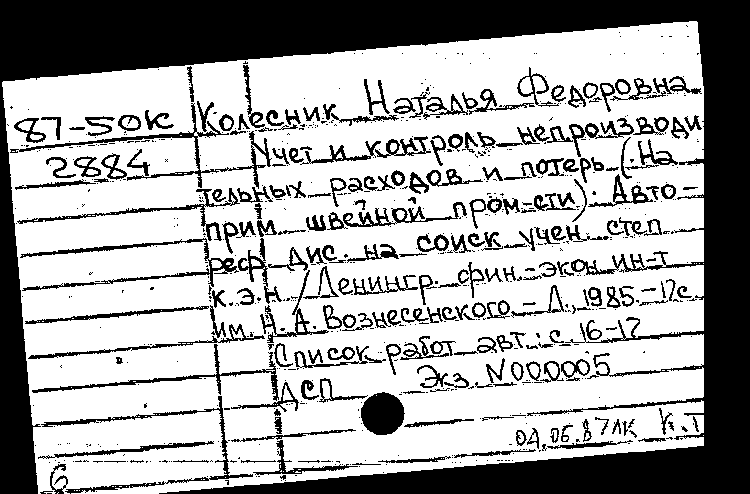 87-50к Колесник, Наталья Федоровна
2884 Учет и контроль непроизводи
тельных расходов и потерь (:На
прим швейной пром-сти): Авто-
реф. дис. на соиск учен. степ
к.э.н. / Ленингр. фин.-экон. ин-т
им. Н.А. Вознесенского.- Л., 1985.-17с
Список работ авт.: с. 16-17
ДСП Экз. N000005
04.06.87 ЛК К.Т
6